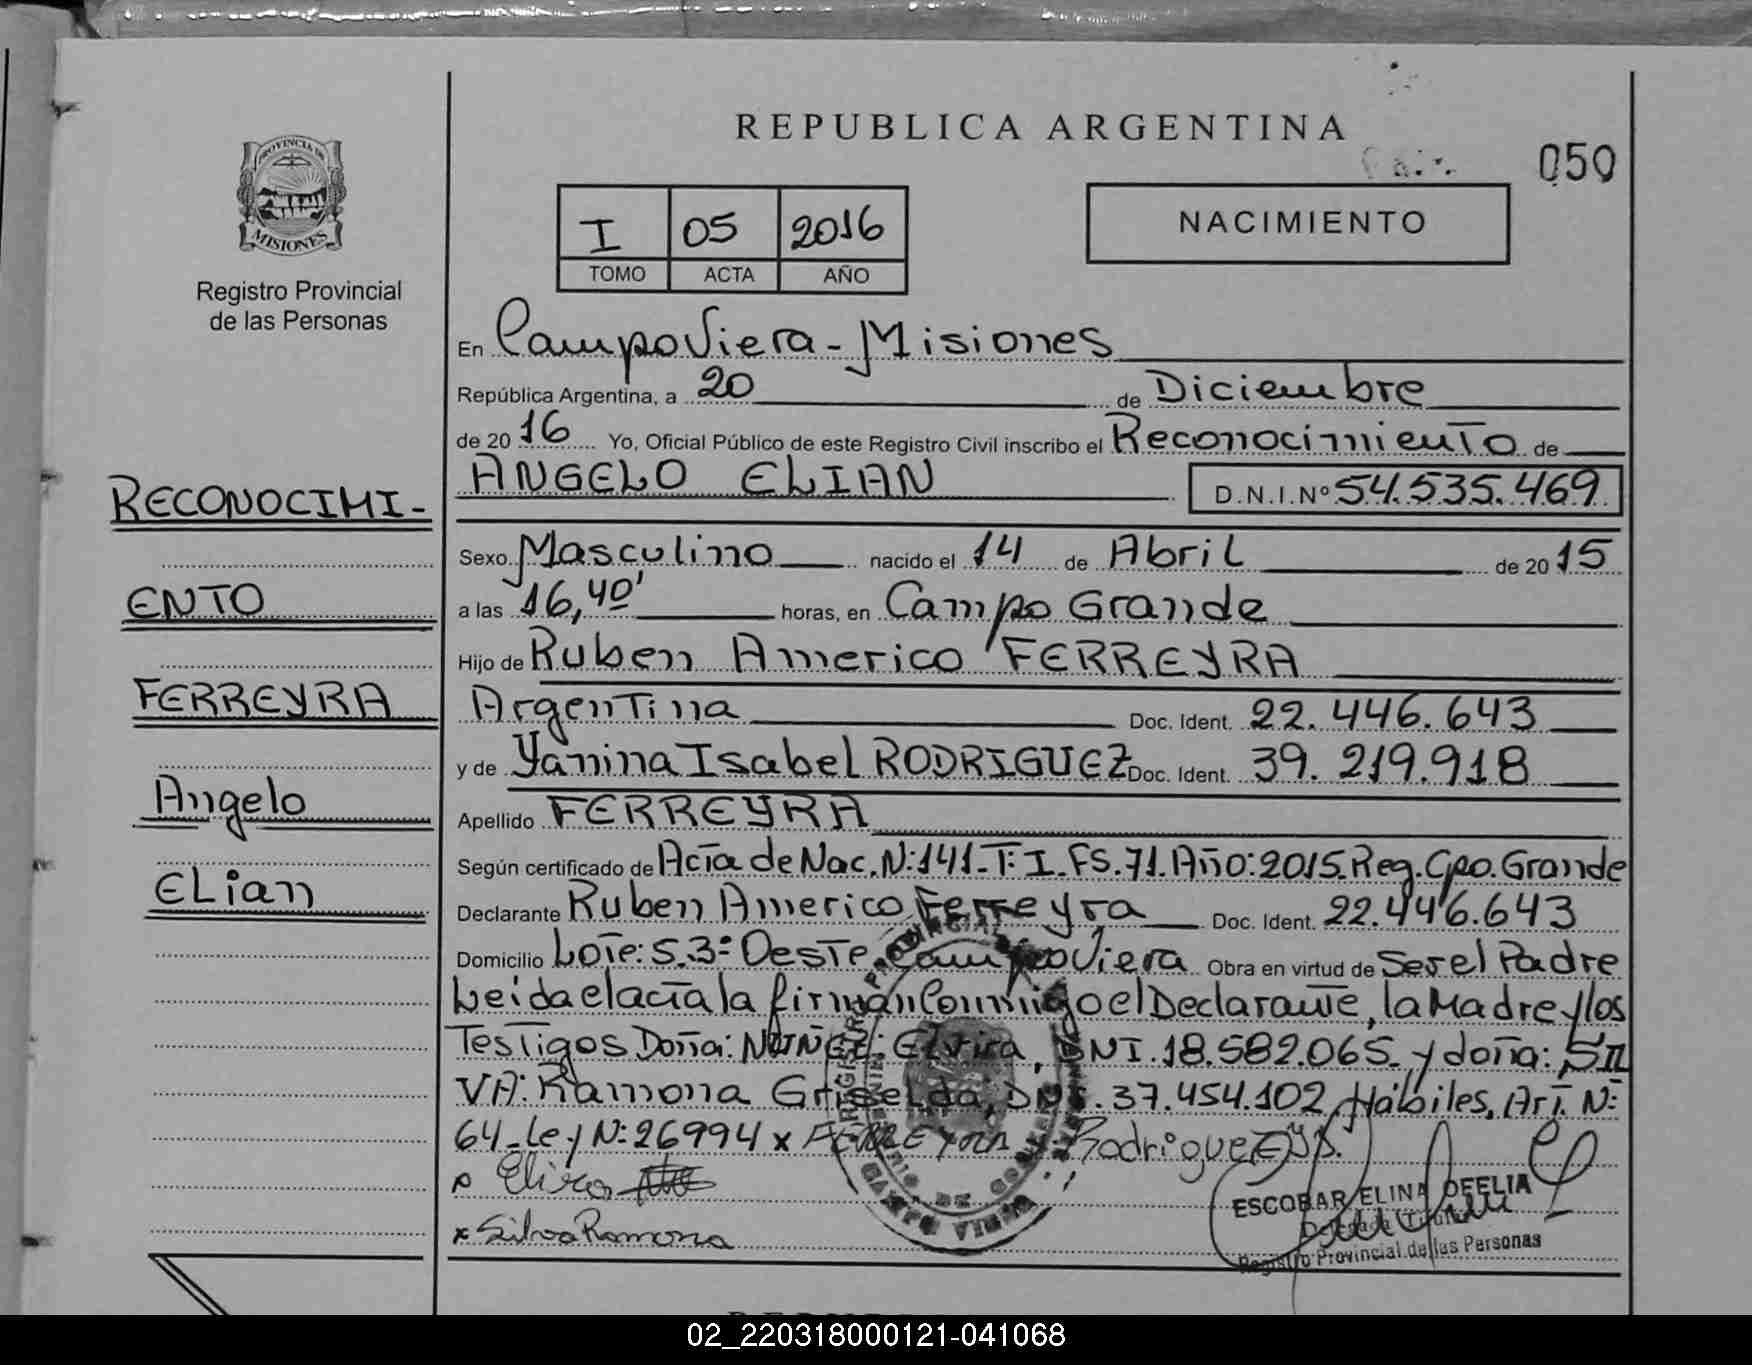 REPUBLICA ARGENTINA
050
PROVINCIA DE
MISIONES
Registro Provincial
de las Personas
I 05 2016
TOMO ACTA AÑO
NACIMIENTO
En Campo Viera - Misiones
República Argentina, a 20 de Diciembre
de 20 16 Yo, Oficial Público de este Registro Civil inscribo el Reconocimiento de
ANGELO ELIAN D.N.I.Nº 54.535.469
RECONOCIMI-
ENTO
FERREYRA
Angelo
ELian
Sexo Masculino nacido el 14 de Abril de 20 15
a las 16,40' horas, en Campo Grande
Hijo de Ruben Americo FERREYRA
Argentina Doc. Ident. 22.446.643
y de Yanina Isabel RODRIGUEZ Doc. Ident. 39.219.918
Apellido FERREYRA
Según certificado de Acta de Nac. N:141-T:I.FS.71.Año:2015.Reg.Cpo.Grande
Declarante Ruben Americo Ferreyra Doc. Ident. 22.446.643
Domicilio Lote:5.3:Oeste.Campo Viera Obra en virtud de Ser el Padre
Leida el acta la firman Conmigo el Declarante, la Madre y los
Testigos Doña: NUÑEZ: Elvira, DNI.18.582.065. y doña: SIL
VA: Ramona Griselda, DNI.37.454.102, Hábiles, Art. N:
64-Ley N:26994 x FERREYRA Rodriguez
ESCOBAR ELINA OFELIA
x Silva Ramona
Registro Provincial de las Personas
02_220318000121-041068